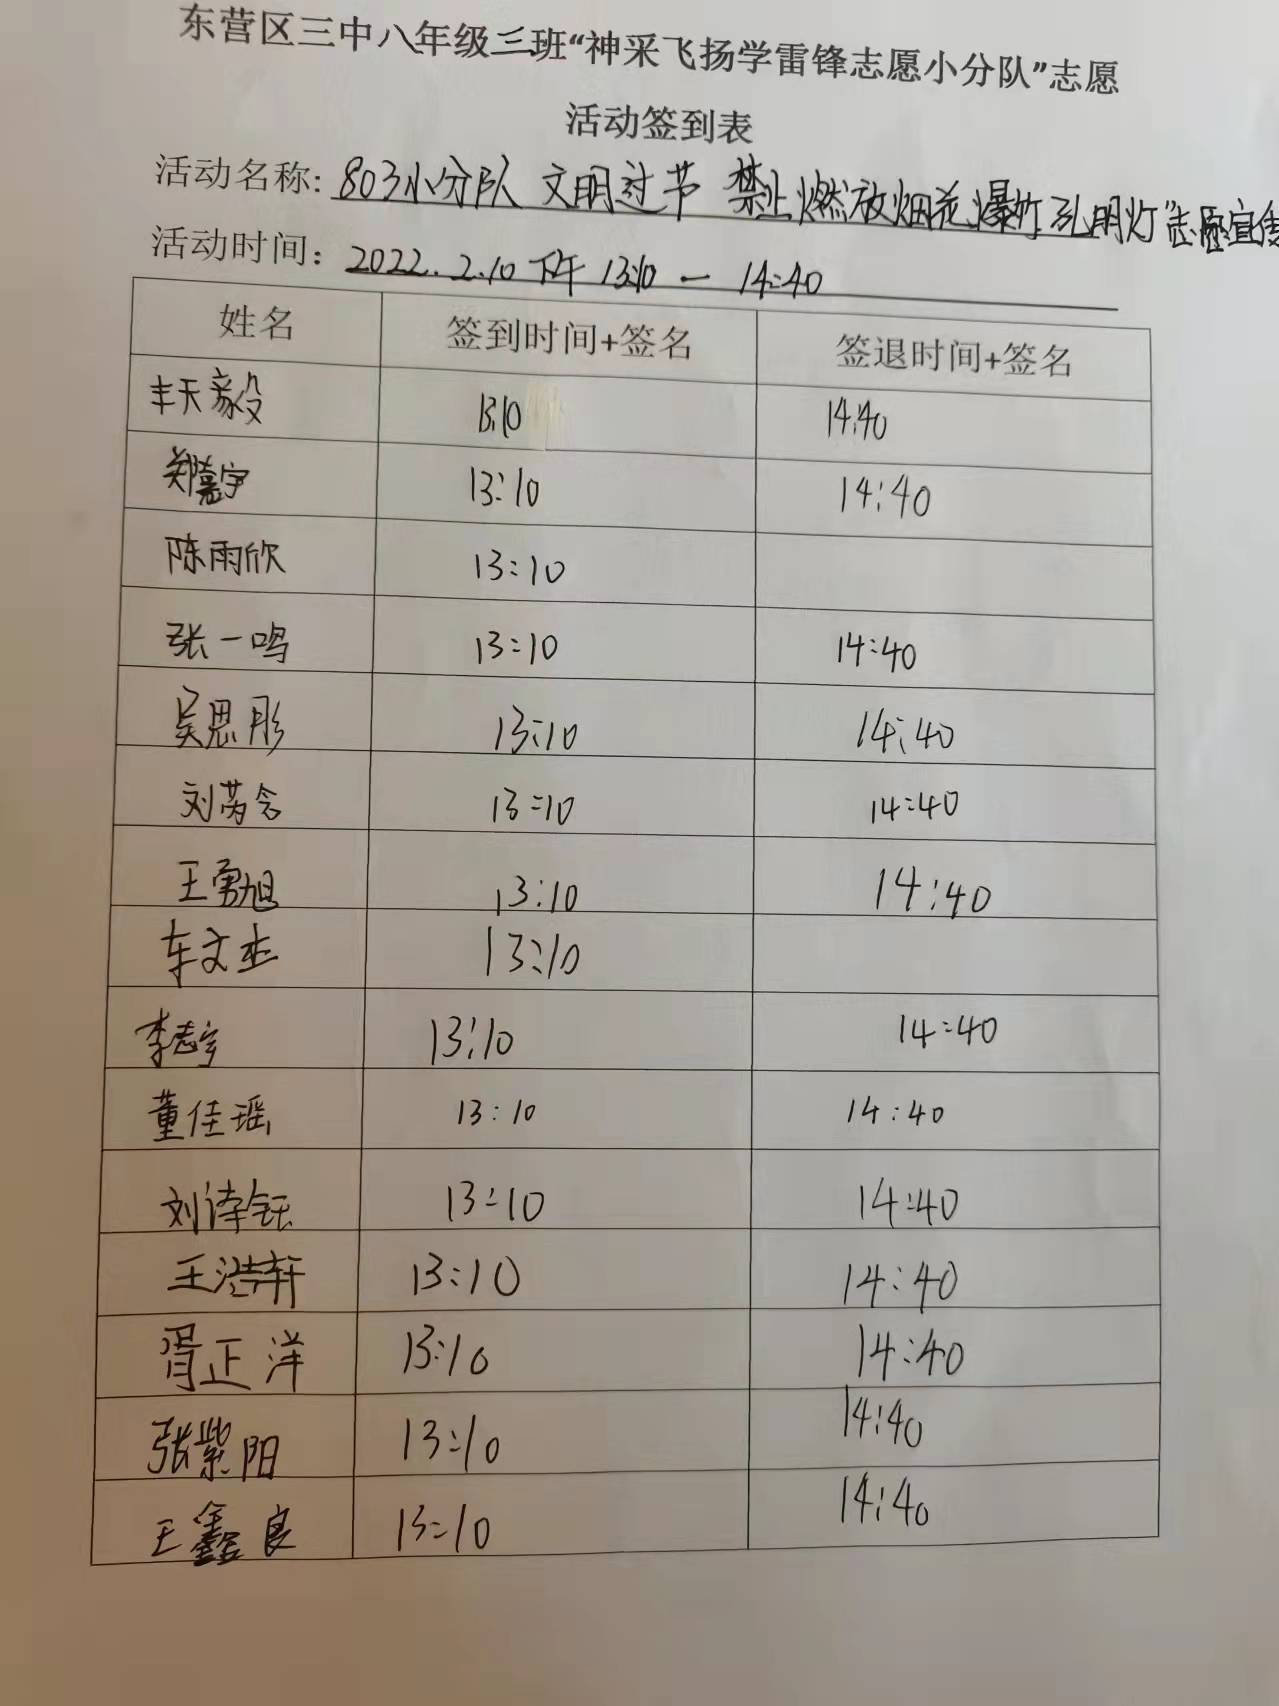 东营区三中八年级三班“神采飞扬学雷锋志愿小分队”志愿
活动签到表
活动名称: 803小分队 文明过节 禁止燃放烟花爆竹孔明灯"志愿宣传
活动时间: 2022.2.10 下午 13:10 — 14:40
姓名 签到时间+签名 签退时间+签名
丰天毅 13:10 14:40
郑嘉宇 13:10 14:40
陈雨欣 13:10
张一鸣 13:10 14:40
吴思彤 13:10 14:40
刘芮含 13:10 14:40
王勇旭 13:10 14:40
车文杰 13:10
李志宇 13:10 14:40
董佳瑶 13:10 14:40
刘诗钰 13:10 14:40
王浩轩 13:10 14:40
胥正洋 13:10 14:40
张紫阳 13:10 14:40
王鑫良 13:10 14:40